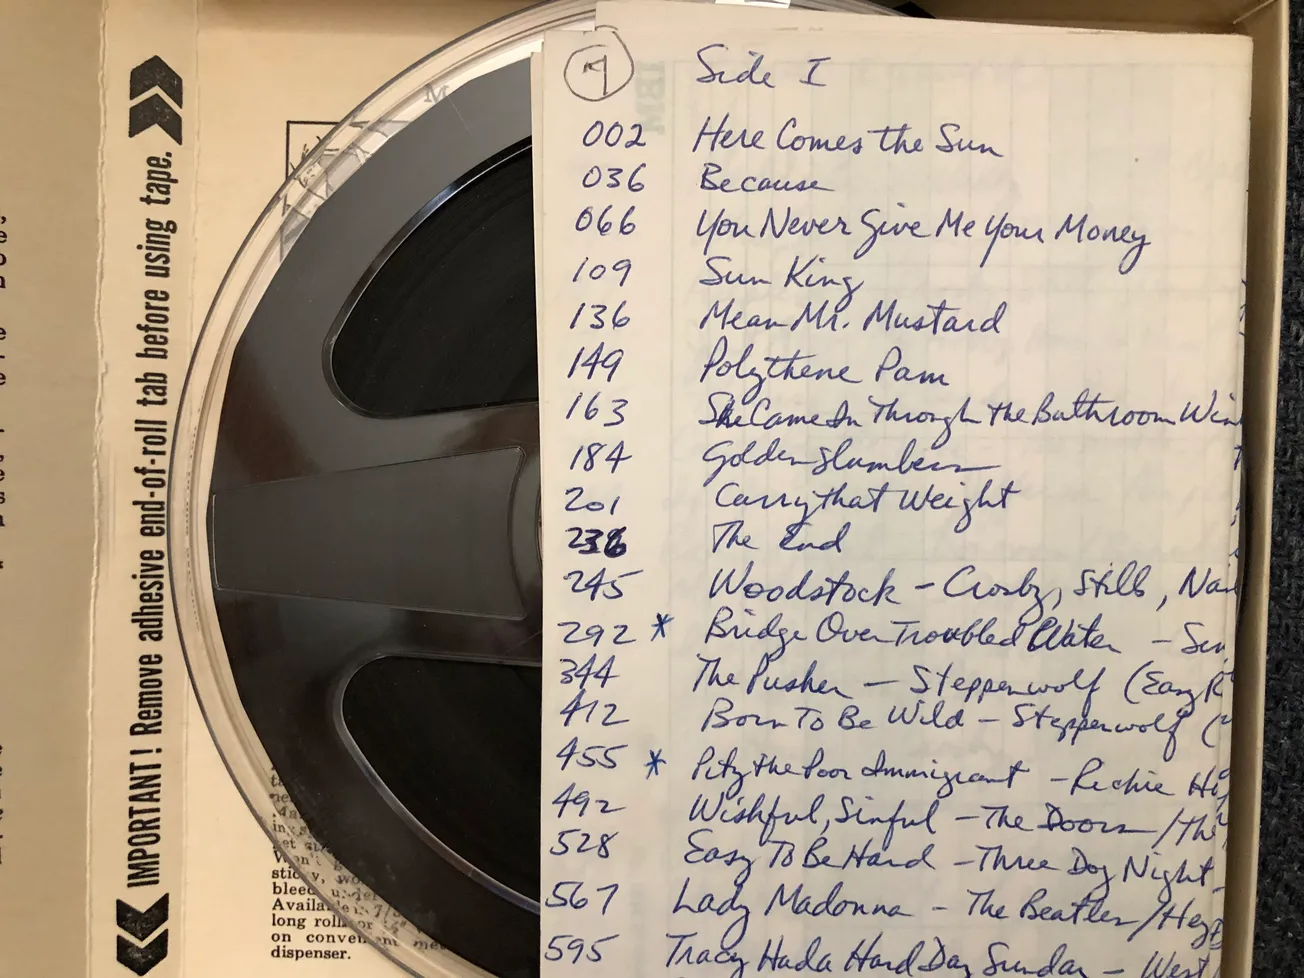 IMPORTANT! Remove adhesive end-of-roll tab before using tape.
bleed
Availa
long roll
on conven
dispenser.
Side I
002 Here Comes the Sun
036 Because
066 You Never Give Me Your Money
109 Sun King
136 Mean Mr. Mustard
149 Polythene Pam
163 She Came In Through the Bathroom Win
184 Golden Slumbers
201 Carry that Weight
236 The End
245 Woodstock - Crosby, Stills, Na
292 * Bridge Over Troubled Water -
344 The Pusher - Steppenwolf (Easy R
412 Born To Be Wild - Steppenwolf (
455 * Pity the Poor Immigrant - Richie H
492 Wishful, Sinful - The Doors / The
528 Easy To Be Hard - Three Dog Night
567 Lady Madonna - The Beatles / Hey
595 Tracy Had a Hard Day Sunday - West